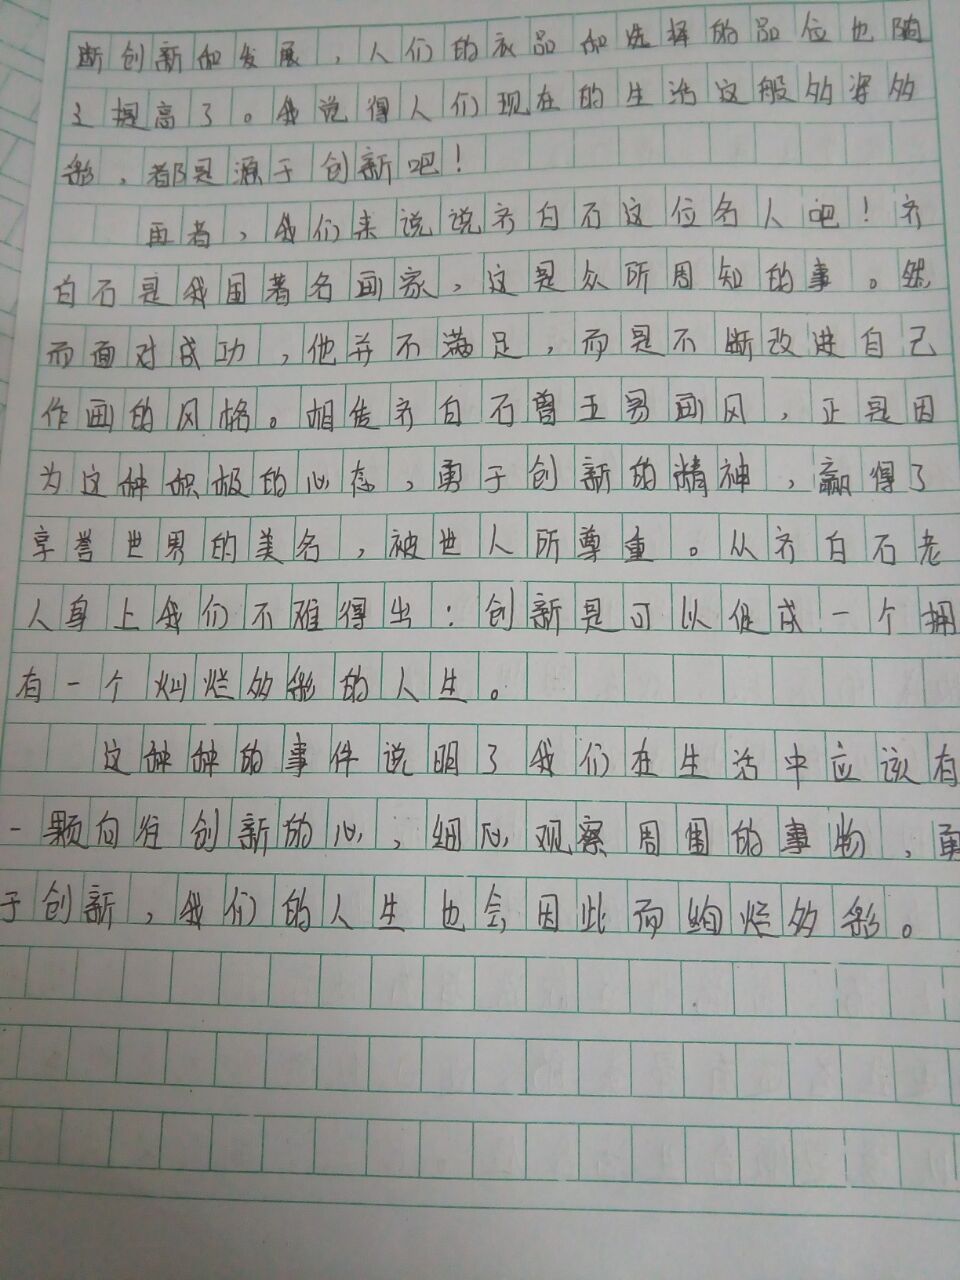 断创新和发展，人们的衣品和选择的品位也随
之提高了。我说得人们现在的生活这般多姿多
彩，都是源于创新吧！
再者，我们来说说齐白石这位名人吧！齐
白石是我国著名画家，这是众所周知的事。然
而面对成功，他并不满足，而是不断改进自己
作画的风格。相传齐白石曾五易画风，正是因
为这种积极的心态，勇于创新的精神，赢得了
享誉世界的美名，被世人所尊重。从齐白石老
人身上我们不难得出：创新是可以促成一个拥
有一个灿烂多彩的人生。
这种种的事件说明了我们在生活中应该有
一颗向往创新的心，细心观察周围的事物，勇
于创新，我们的人生也会因此而绚烂多彩。